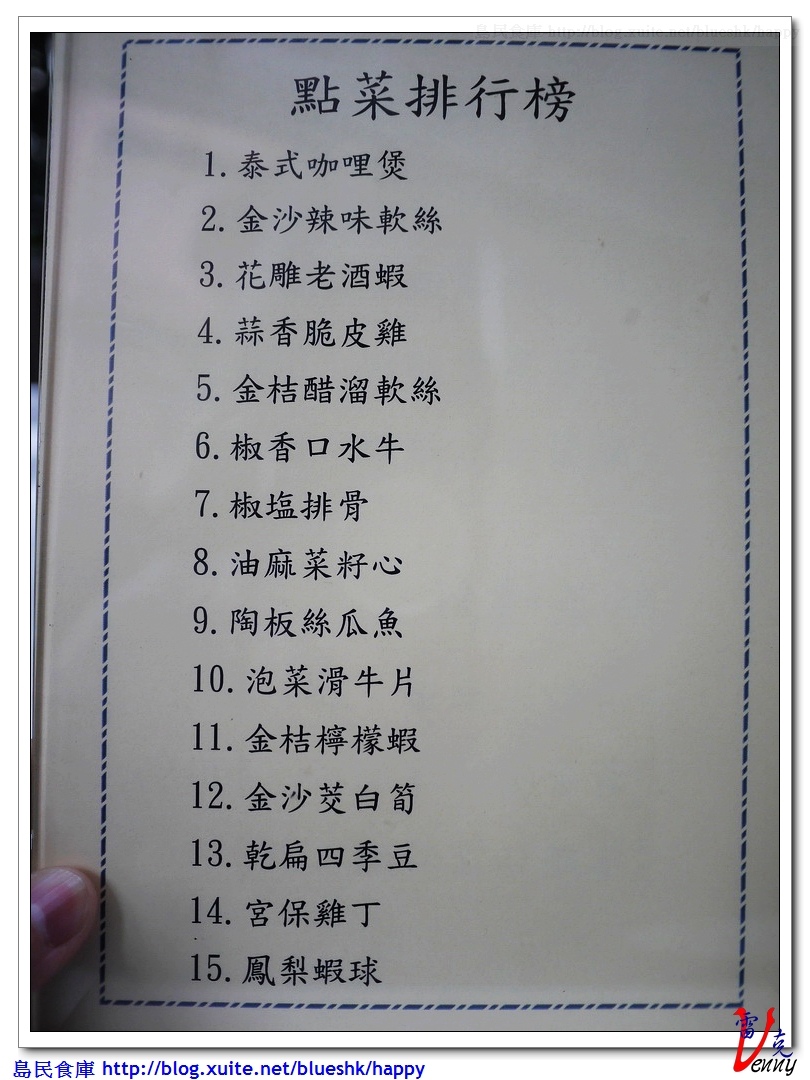 島民食庫 http://blog.xuite.net/blueshk/happy
點菜排行榜
1. 泰式咖哩煲
2. 金沙辣味軟絲
3. 花雕老酒蝦
4. 蒜香脆皮雞
5. 金桔醋溜軟絲
6. 椒香口水牛
7. 椒塩排骨
8. 油麻菜籽心
9. 陶板絲瓜魚
10. 泡菜滑牛片
11. 金桔檸檬蝦
12. 金沙茭白筍
13. 乾扁四季豆
14. 宮保雞丁
15. 鳳梨蝦球
雷克
Venny
島民食庫 http://blog.xuite.net/blueshk/happy